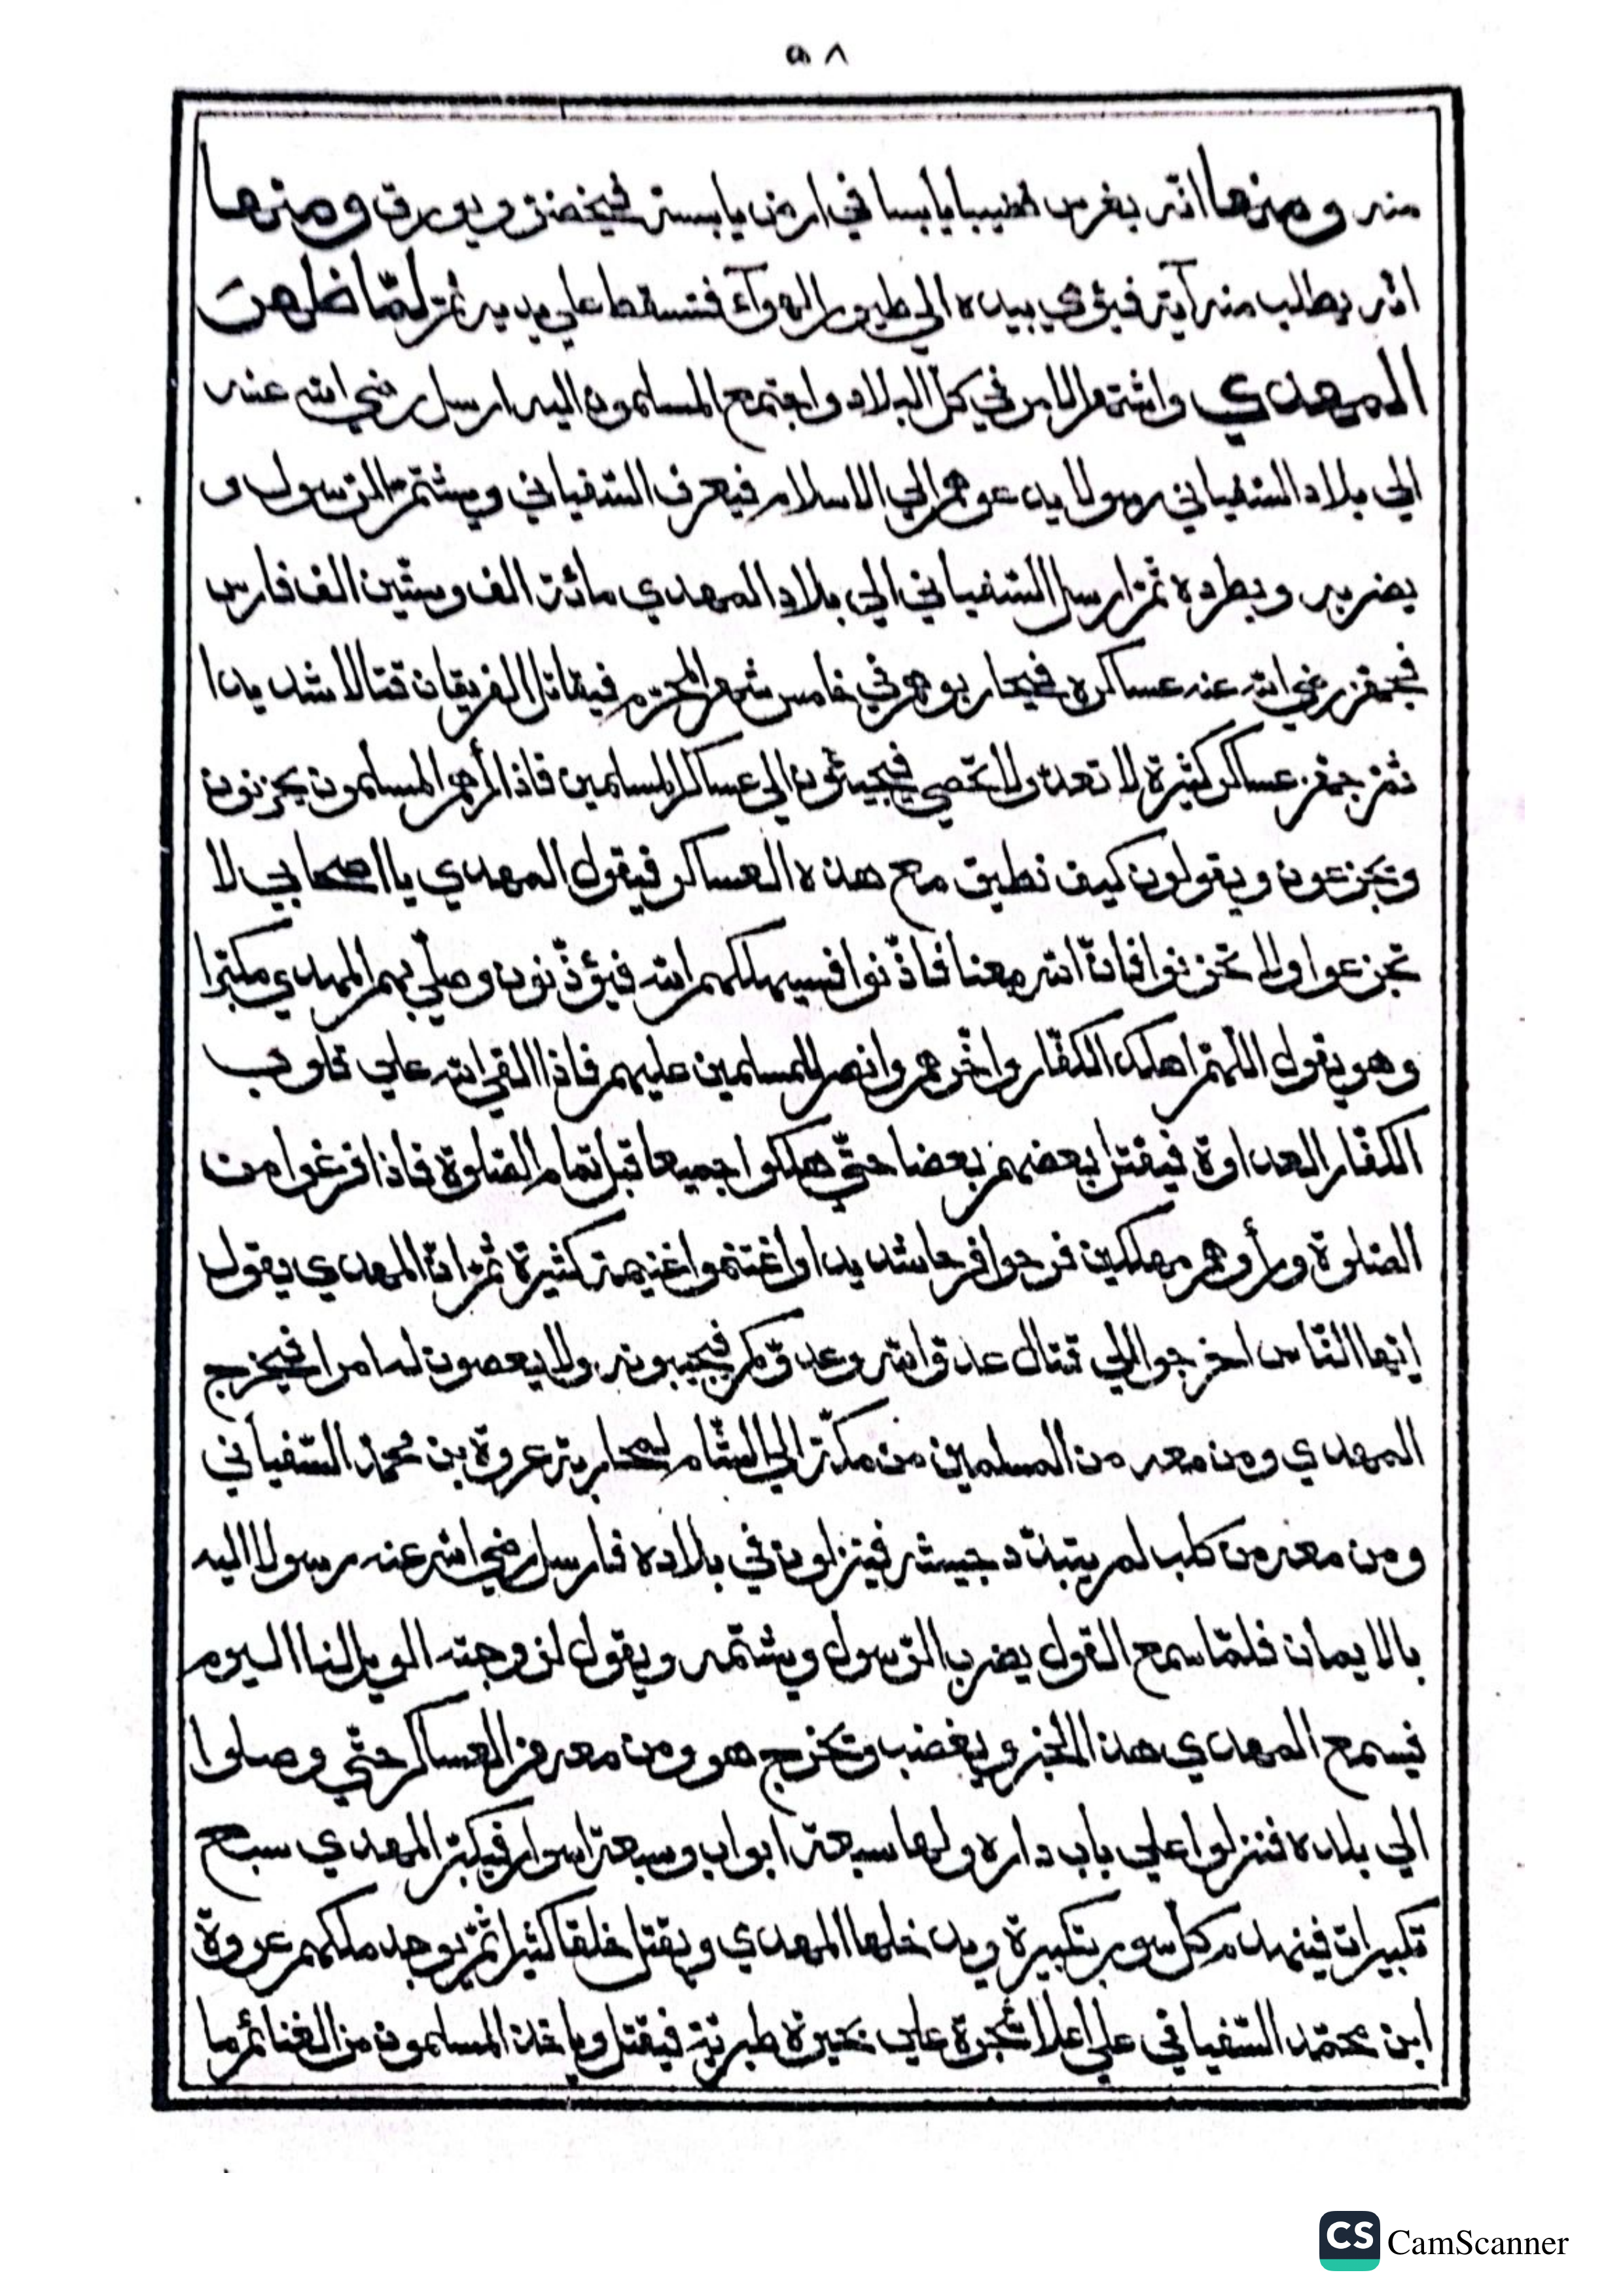 ٥٨
منه ومنها انّه يغرس قضيبا يابسا في ارض يابسة فيخضرّ ويورق ومنها
انّه يطلب منه آية فيؤمي بيده الي طيور الهوآء فتسقط علي يديه ثمّ لمّا ظهر
المهدي واشتهر الامر في كلّ البلاد واجتمع المسلمون اليه ارسل رضي الله عنه
الي بلاد السّفياني رسولا يدعوهم الي الاسلام فيعرف السّفياني ويشتم الرّسول و
يضربه ويطرده ثمّ ارسل السّفياني الي بلاد المهدي مائة الف وستّين الف فارس
فيجهّز رضي الله عنه عساكره فيحاربوهم في خامس شهر المحرّم فيقاتل الفريقان قتالا شديدا
ثمّ جهّز عساكر كثيرة لا تعدّ ولا تحصي فيجيئون الي عساكر المسلمين فاذا رأهم المسلمون يحزنون
ويجزعون ويقولون كيف نطيق مع هذه العساكر فيقول المهدي يا اصحابي لا
تجزعوا ولا تحزنوا فانّ الله معنا فاذّنوا فسيهلكهم الله فيؤذّنون وصلّي بهم المهدي مكبّرا
وهو يقول اللّهمّ اهلك الكفّار واخزهم وانصر المسلمين عليهم فاذا القي الله علي قلوب
الكفّار العداوة فيقتل بعضهم بعضا حتّي هلكوا جميعا قبل تمام الصّلوة فاذا فرغوا من
الصّلوة ورأوهم مهلكين فرحوا فرحا شديدا واغتنموا غنيمة كثيرة ثمّ انّ المهدي يقول
ايّها النّاس اخرجوا الي قتال عدوّ الله وعدوّكم فيجيبونه ولا يعصون له امرا فيخرج
المهدي ومن معه من المسلمين من مكّة الي الشّام لمحاربة عروة بن محمّد السّفياني
ومن معه من كلب لم يتبدّد جيشه فينزلون في بلاده فارسل رضي الله عنه رسولا اليه
بالايمان فلمّا سمع القول يضرب الرّسول ويشتمه ويقول لزوجته الويل لنا اليوم
فيسمع المهدي هذا الخبر ويغضب ويخرج هو ومن معه من العساكر حتّي وصلوا
الي بلده فنزلوا علي باب داره ولها سبعة ابواب وسبعة اسوار فيكبّر المهدي سبع
تكبيرات فينهدم كلّ سور بتكبيرة ويدخلها المهدي ويقتل خلقا كثيرا ثمّ يوجد ملكهم عروة
ابن محمّد السّفياني علي اعلا شجرة علي بحيرة طبريّة فيقتل وياخذ المسلمون من الغنائم ما
CS CamScanner